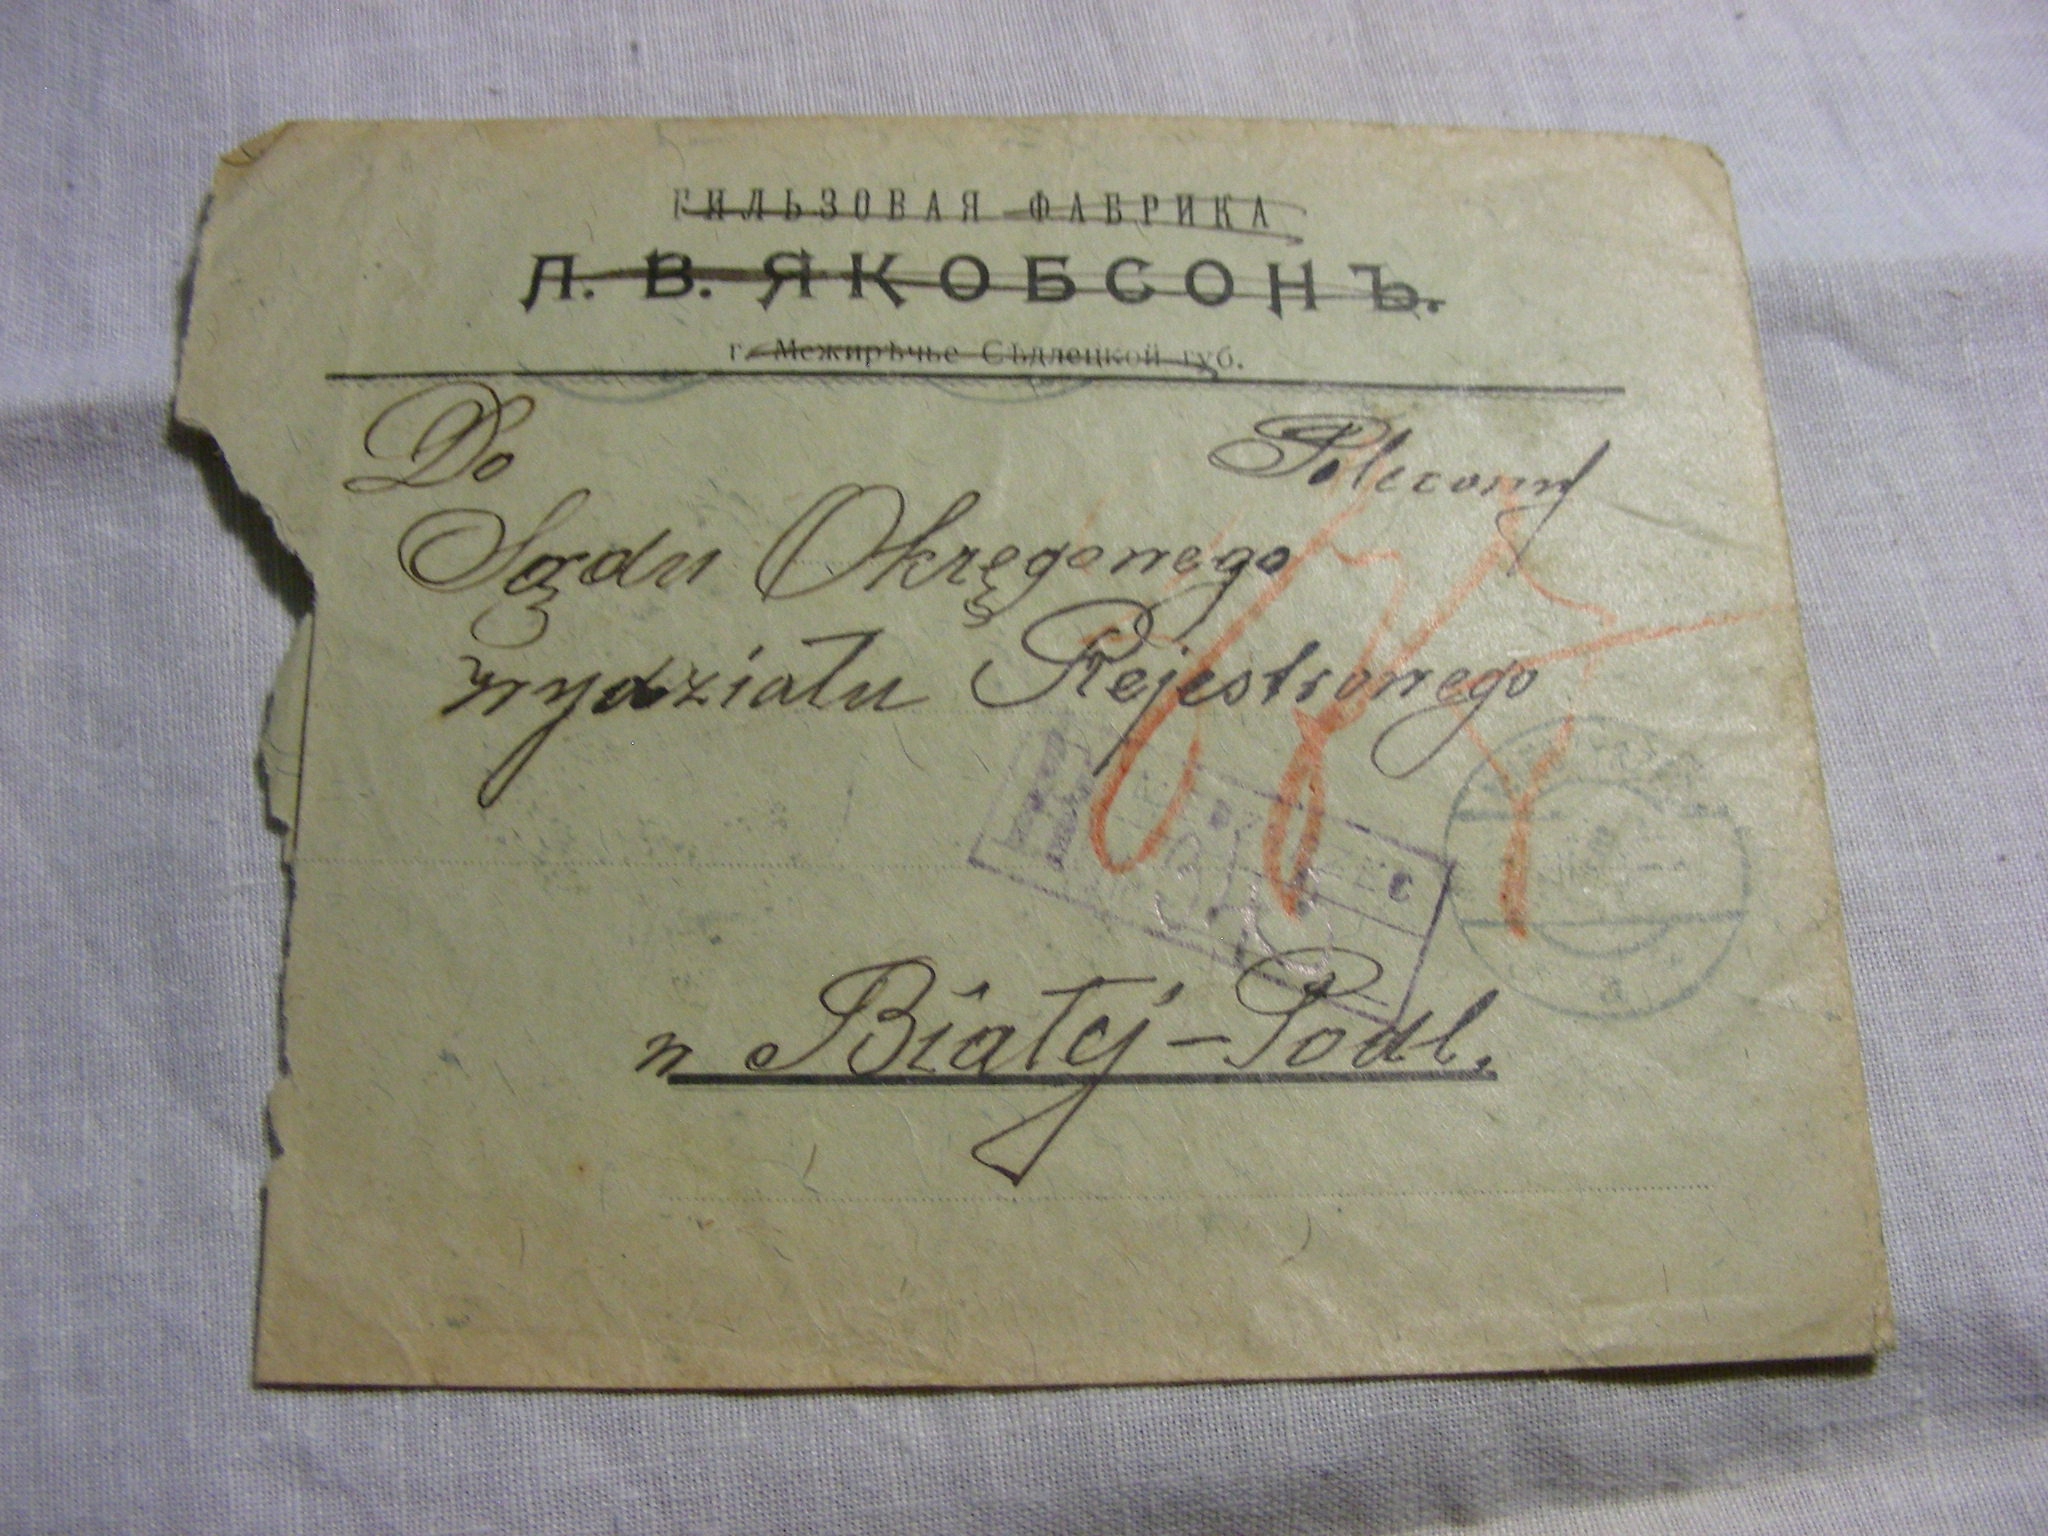 ГИЛЬЗОВАЯ ФАБРИКА
Л. В. ЯКОБСОНЪ.
г. Межирѣчье Сѣдлецкой губ.
Do
Polecony
Sądu Okręgowego
wydziału Rejestrowego
R
w Białej-Podl.
a